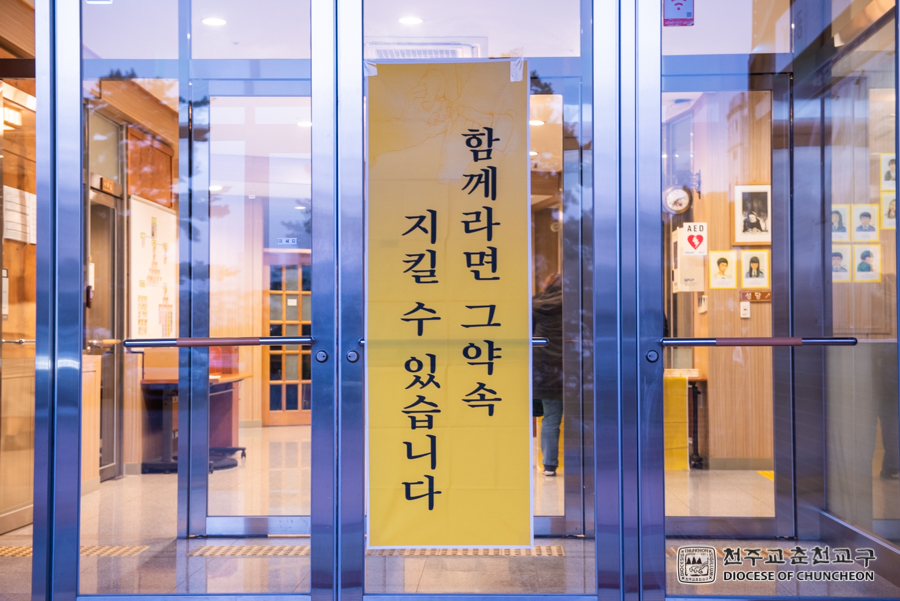 함께라면 그 약속
지킬 수 있습니다
AED
천주교춘천교구
DIOCESE OF CHUNCHEON